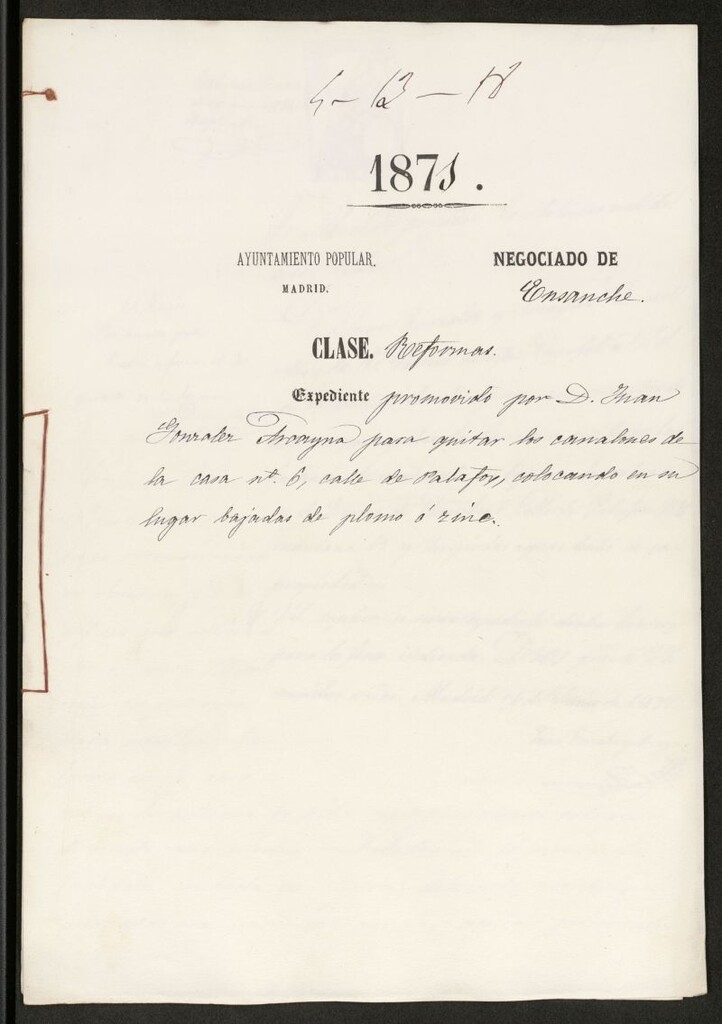 4 - 13 - 18
1871.
AYUNTAMIENTO POPULAR.
MADRID.
NEGOCIADO DE
Ensanche.
CLASE. Reformas.
Expediente promovido por D. Juan
Gonzalez para quitar los canalones de
la casa nº. 6, calle de Palafox, colocando en su
lugar bajadas de plomo ó zinc.